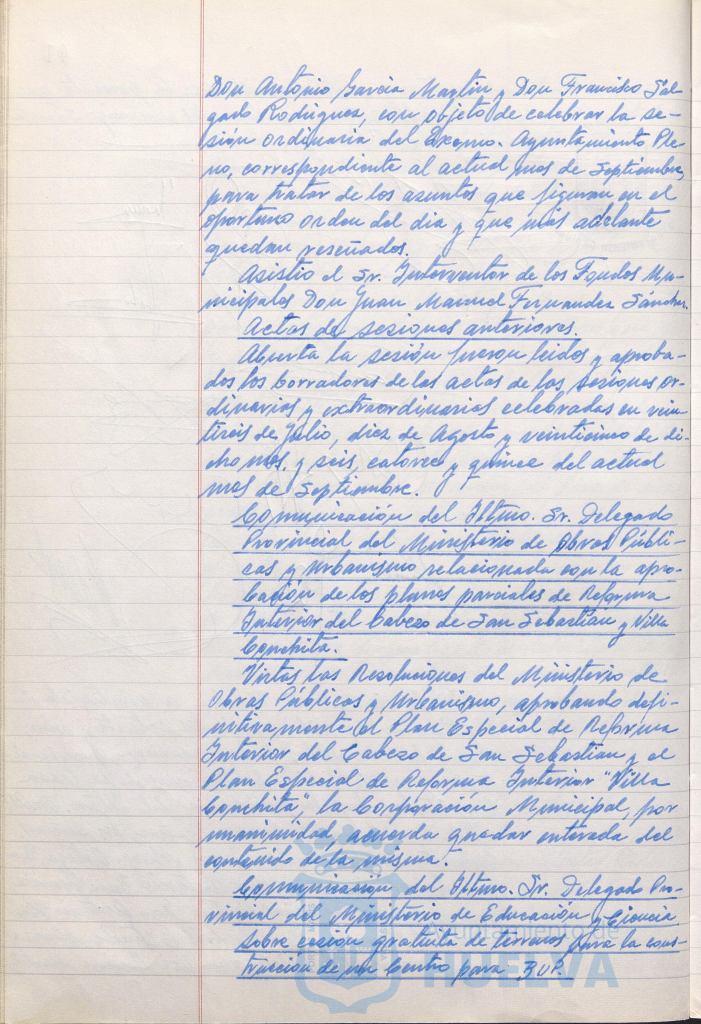 Don Antonio García Martín y Don Francisco Sal
gado Rodríguez, con objeto de celebrar la se-
sión ordinaria del Excmo. Ayuntamiento Ple-
no, correspondiente al actual mes de Septiembre,
para tratar de los asuntos que figuran en el
oportuno orden del día y que más adelante
quedan reseñados.
Asistió el Sr. Interventor de los Fondos Mu-
nicipales Don Juan Manuel Fernandez Sánchez.
Actas de sesiones anteriores.
Abierta la sesión fueron leidos y aproba-
dos los borradores de las actas de las sesiones or-
dinarias y extraordinarias celebradas en vein
tiseis de Julio, diez de Agosto y veinticinco de di-
cho mes, y seis, catorce y quince del actual
mes de Septiembre.
Comunicación del Iltmo. Sr. Delegado
Provincial del Ministerio de Obras Públi-
cas y Urbanismo relacionada con la apro-
bación de los planes parciales de Reforma
Interior del Cabezo de San Sebastián y Villa
Conchita.
Vistas las Resoluciones del Ministerio de
Obras Públicas y Urbanismo, aprobando defi-
nitivamente el Plan Especial de Reforma
Interior del Cabezo de San Sebastian y el
Plan Especial de Reforma Interior "Villa
Conchita", la Corporación Municipal, por
unanimidad, acuerda quedar enterada del
contenido de la misma.
Comunicación del Iltmo. Sr. Delegado Pro-
vincial del Ministerio de Educación y Ciencia
sobre cesión gratuita de terrenos para la cons-
trucción de un Centro para BUP.
Ayuntamiento de
HUELVA